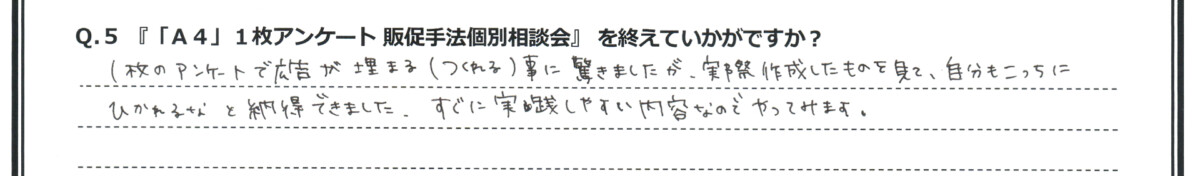 Q.5 『「A4」1枚アンケート 販促手法個別相談会』 を終えていかがですか？
1枚のアンケートで広告が埋まる(つくれる)事に驚きましたが、実際作成したものを見て、自分もこっちに
ひかれるな と納得できました。すぐに実践しやすい内容なのでやってみます。